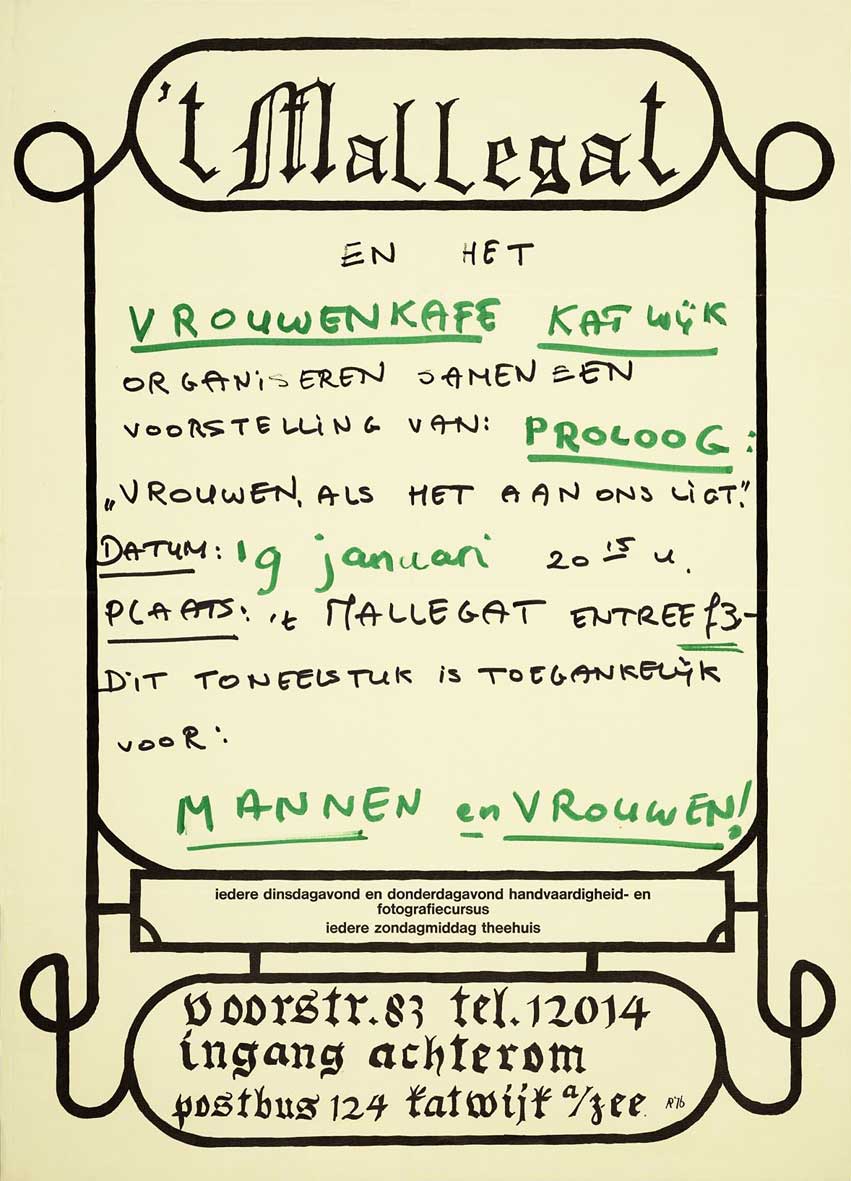 't Mallegat
EN HET
VROUWENKAFE KATWIJK
ORGANISEREN SAMEN EEN
VOORSTELLING VAN: PROLOOG:
„VROUWEN, ALS HET AAN ONS LIGT."
DATUM: 19 januari 20 15 u.
PLAATS: 't MALLEGAT ENTREE f3,-
DIT TONEELSTUK IS TOEGANKELIJK
VOOR:
MANNEN en VROUWEN!
iedere dinsdagavond en donderdagavond handvaardigheid- en
fotografiecursus
iedere zondagmiddag theehuis
voorstr. 83 tel. 12014
ingang achterom
postbus 124 katwijk a/zee. R'76